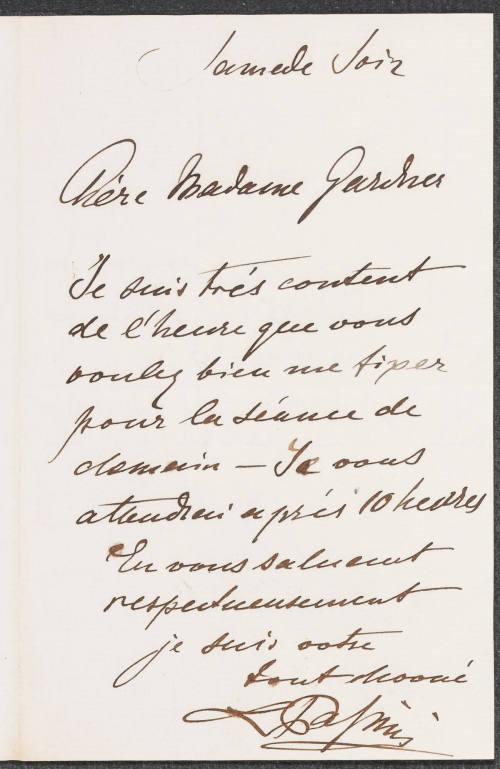 Samede Soir
Chère Madame Gardner
Je suis trés content
de l'heure que vous
voulez bien me fixer
pour la séance de
demain — Je vous
attendrai aprés 10 heures
En vous saluant
respectueusement
je suis votre
tout devoué
L Passini